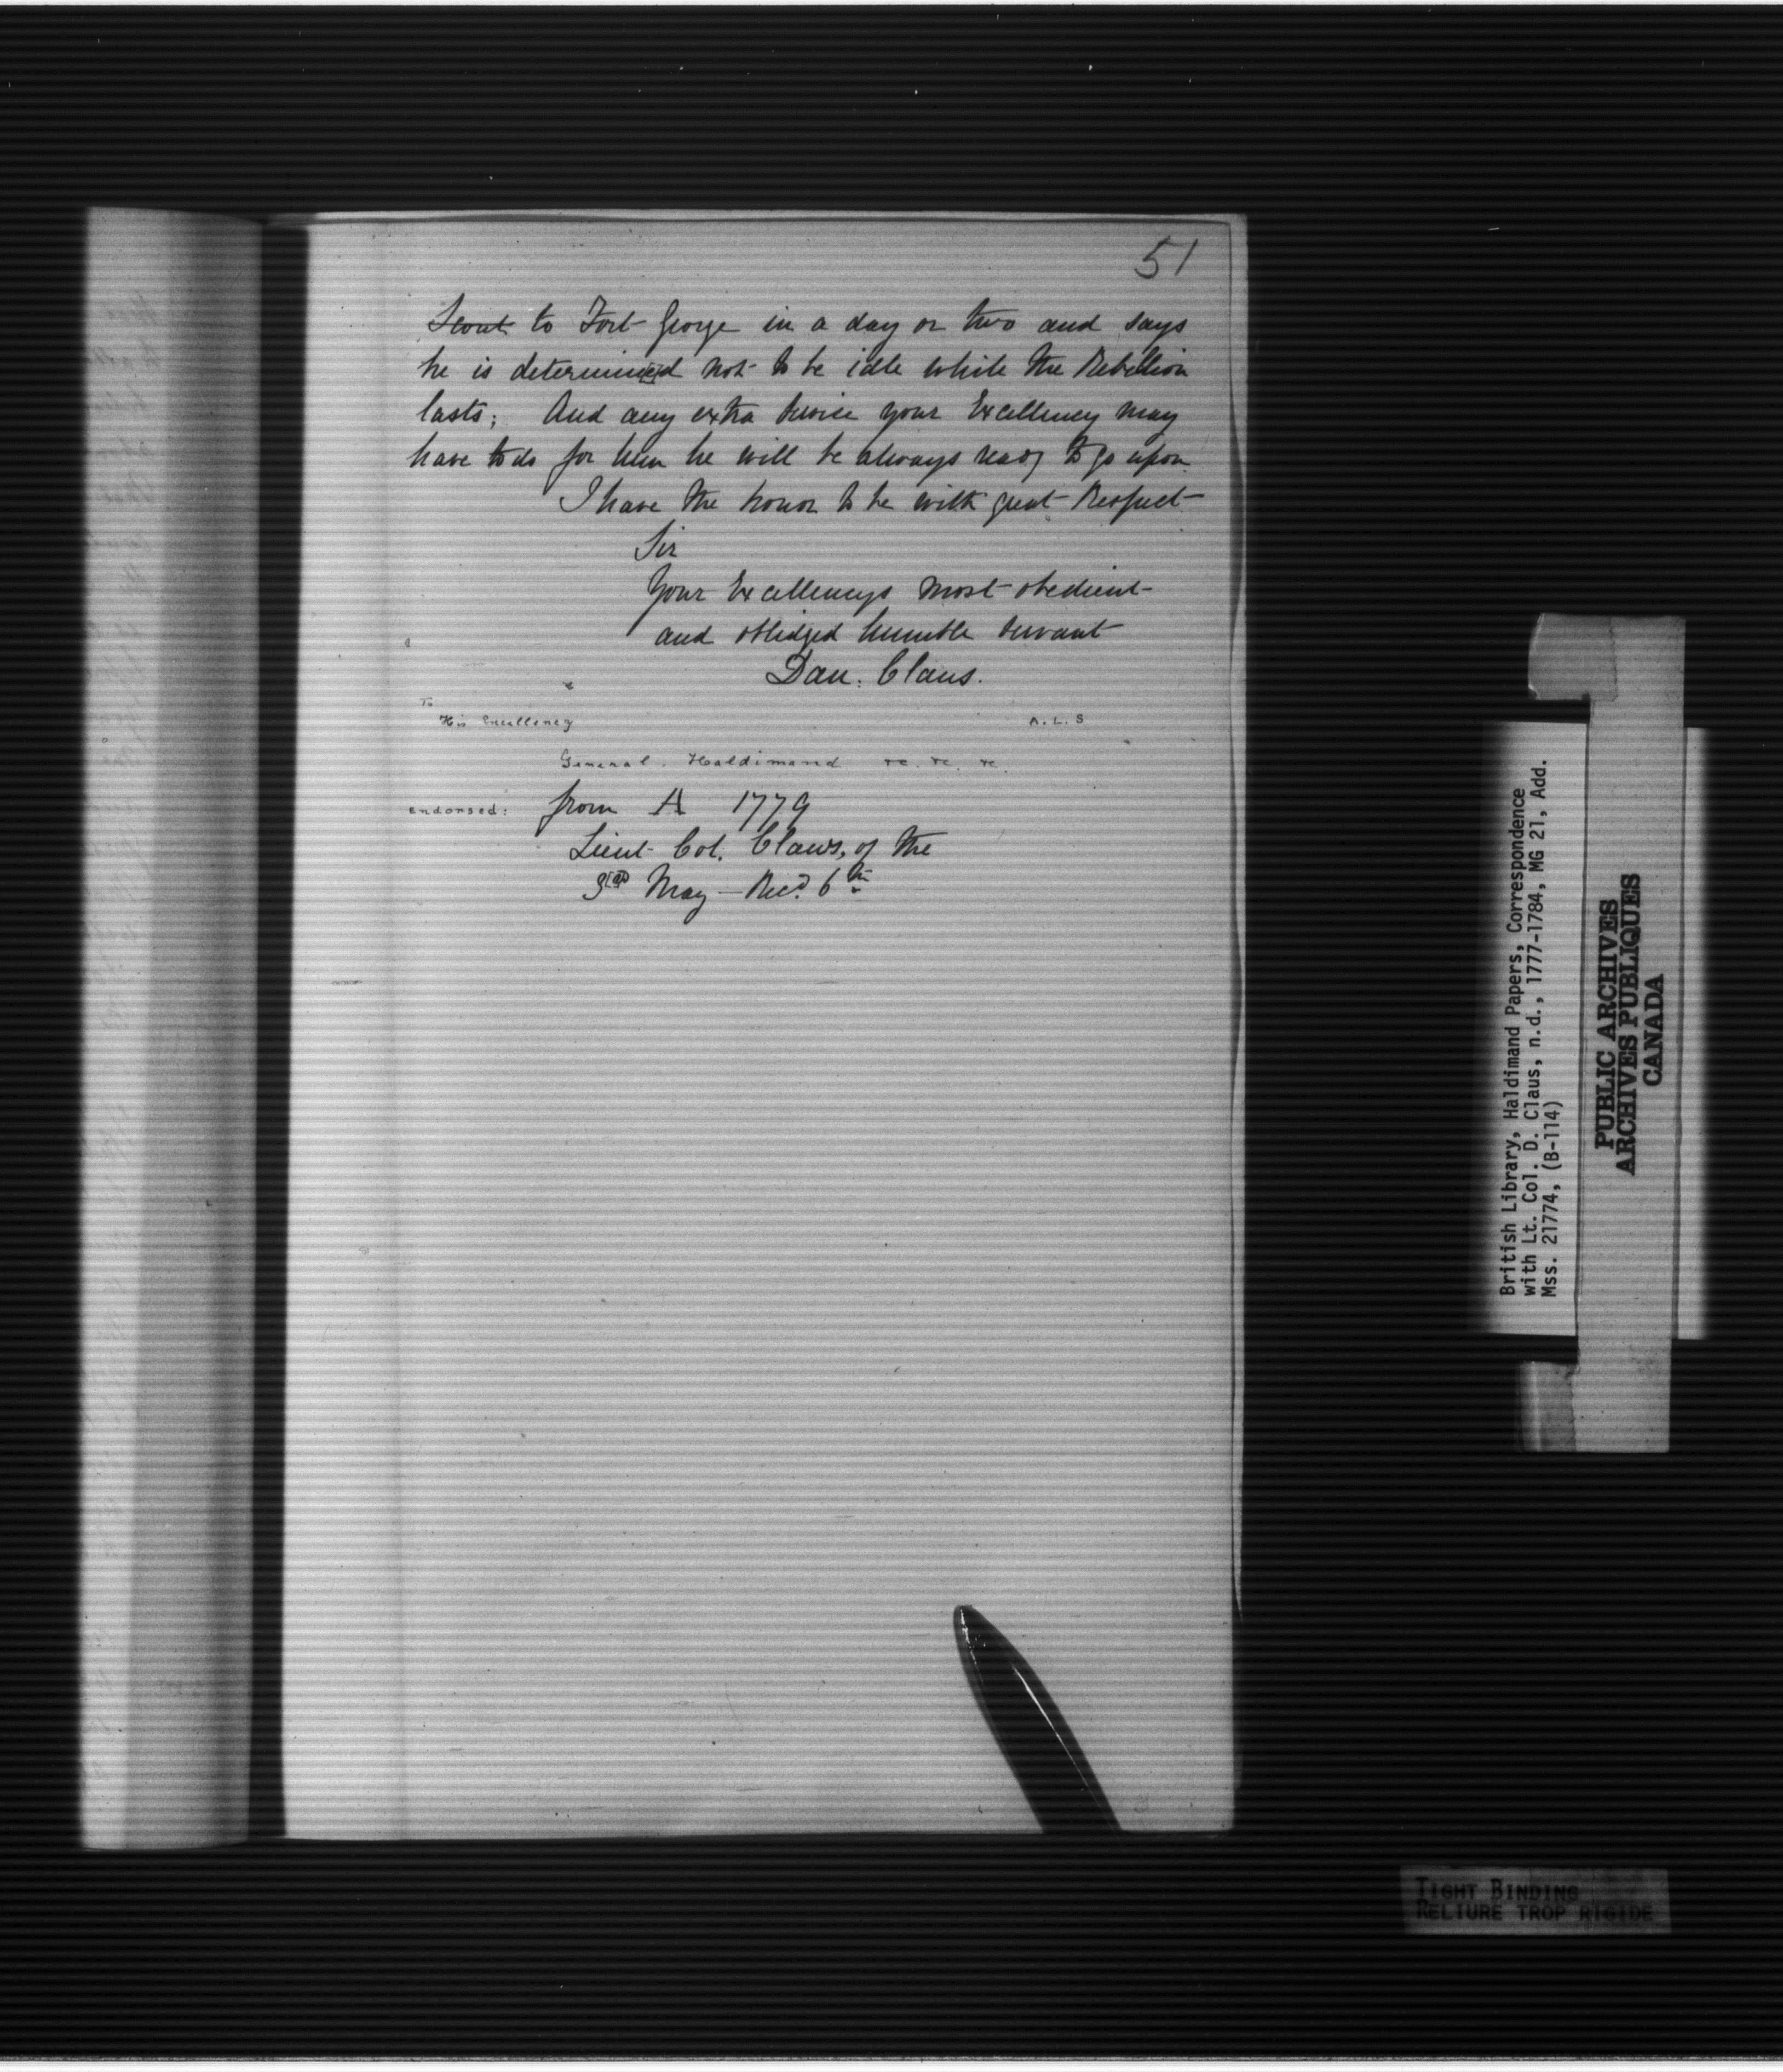 51
Scout to Fort George in a day or two and says
he is determined not to be idle while the Rebellion
lasts; And any extra Service your Excellency may
have to do for him he will be always ready to go upon
I have the honor to be with great Respect
Sir
Your Excellencys most obedient
and obliedged humble Servant
Dan: Claus.
To
His Excellency A.L.S
General Haldimand &c. &c. &c.
Endorsed: from A 1779
Lieut Col. Claws, of the
3rd May — Recd. 6th
British Library, Haldimand Papers, Correspondence
with Lt. Col. D. Claus, n.d., 1777-1784, MG 21, Add.
Mss. 21774, (B-114)
PUBLIC ARCHIVES
ARCHIVES PUBLIQUES
CANADA
TIGHT BINDING
RELIURE TROP RIGIDE